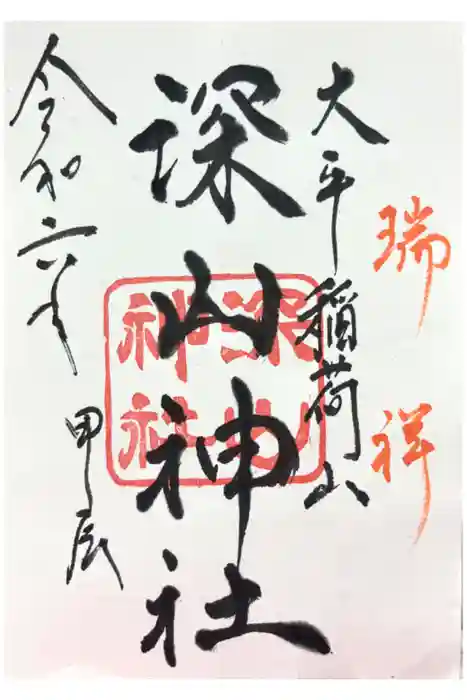 瑞祥
大平稲荷山
深山神社
深山神社
令和六年
甲辰